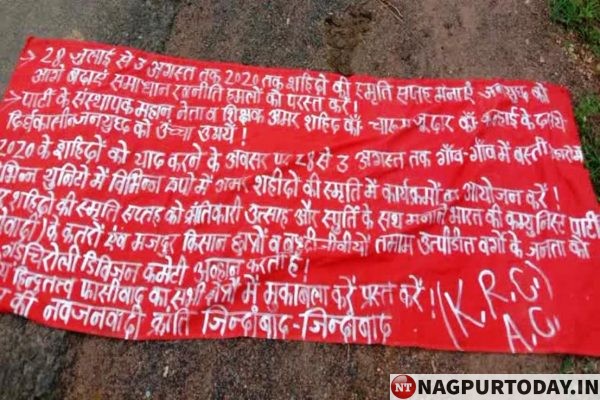 → 28 जुलाई से 3 अगस्त तक 2020 तक शहिदो की स्मृति सप्ताह मनाऐं जनयुद्ध को
आगे बढ़ाऐं समाधान रणनीति हमलों को परस्त करें!
→ पार्टी के संस्थापक महान् नेता व शिक्षक अमर शहिद कॉ॰ चारू
दिर्घकालीन जनयुद्ध को उच्चा उठायें!
2020 के शहिदों को याद करने के अवसर पर 28 से 3 अगस्त तक गाँव-गाँव में बस्ती
विभिन्न युनिटो में विभिन्न रूपो में अमर शहीदों की स्मृति में कार्यक्रमों का आयोजन करें!
शहिदों की स्मृति सप्ताह को क्रांतिकारी उत्साह और स्फुर्ति के साथ मनाने भारत की कम्युनिस्ट पार्टी
के कतारों एंव मजदूर किसान छात्रों व बुद्धीजीवीयों तमाम उत्पीडीत वर्गो के जनता को
डिविजन कमेटी आव्हान करती है।
हिन्दुत्तव फासीवाद का सभी क्षेत्रों में मुकाबला करें प्रस्त करें!
की नवजनवादी क्रांति जिन्दाबाद-जिन्दाबाद
(K.R.C)
A.C
NT NAGPURTODAY.IN